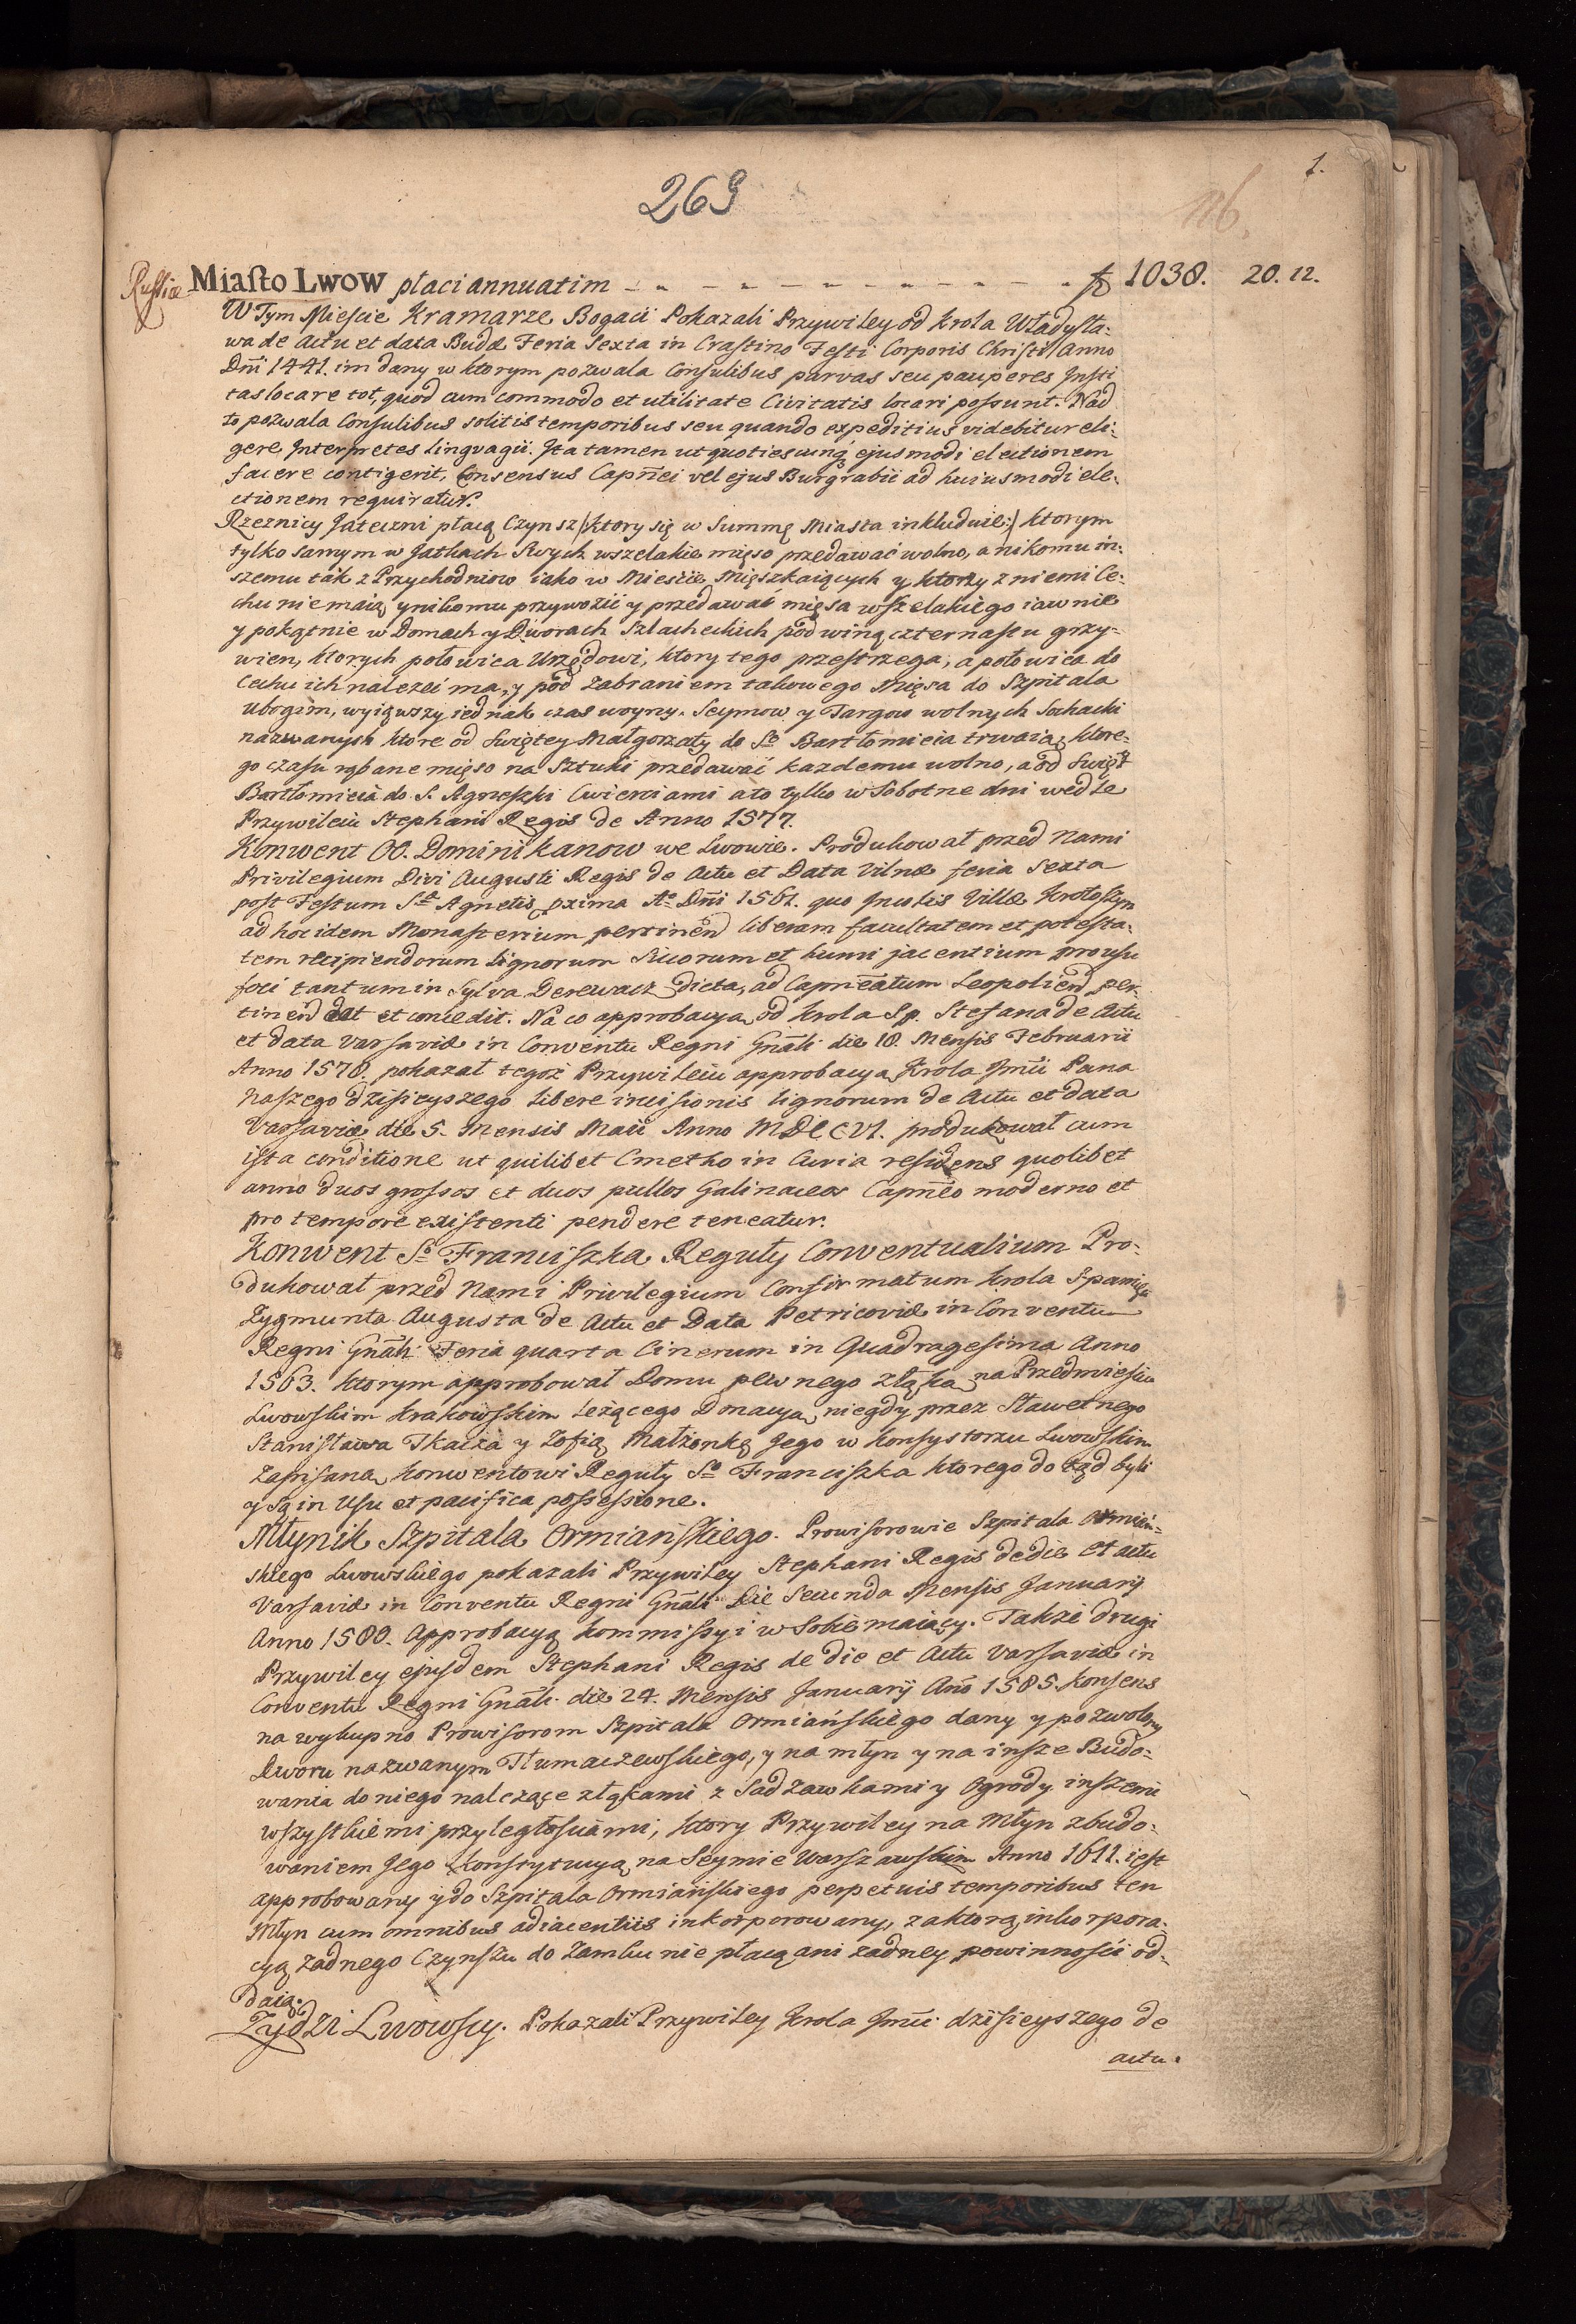 1.
269
116.
Russiæ Miasto Lwow płaci annuatim - - - - - - - - - - - fl 1038. 20. 12.
W Tym Miescie Kramarze Bogaci Pokazali Przywiley od Krola Władysła-
wa de Actu et data Budæ Feria Sexta in Crastino Festi Corporis Christi Anno
Dni 1441. im dany w ktorym pozwala Consulibus parvas seu pauperes Insti
tas locare tot, quod cum commodo et utilitate Civitatis locari possunt. Nad
to pozwala Consulibus solitis temporibus seu quando expeditius videbitur eli-
gere Interpretes Lingvagii. Ita tamen ut quotiescunq ejusmodi electionem
facere contigerit, Consensus Capnei vel ejus Burgrabii ad huiusmodi ele-
ctionem requiratur.
Rzeznicy Jateczni płacą Czynsz /:ktory się w Summę Miasta inkluduie:/ ktorym
tylko samym w Jatkach Swych wszelakie mięso przedawać wolno, a nikomu in-
szemu tak z Przychodniow iako w Miescie Mięszkaiących y ktorzy z niemi Ce-
chu nie maią y nikomu przywozić y przedawać mięsa wszelakiego iawnie
y pokątnie w Domach y Dworach Szlacheckich pod winą czternastu grzy-
wien, ktorych połowica Urzędowi, ktory tego przestrzega, a połowica do
Cechu ich należeć ma, y pod Zabraniem takowego Mięsa do Szpitala
Ubogim, wyiąwszy iednak czas woyny. Seymow y Targow wolnych Sochacki
nazwanych ktore od Swiętey Małgorzaty do So Bartłomieia trwaią, ktore-
go czasu rąbane mięso na Sztuki przedawać kazdemu wolno, a od Swięt
Bartłomieia do S. Agneszki Cwierciami a to tylko w Sobotne dni wedle
Przywileiu Stephani Regis de Anno 1577.
Konwent OO. Dominikanow we Lwowie. Produkował przed Nami
Privilegium Divi Augusti Regis de Actu et Data Vilnæ feria Sexta
post Festum Stæ Agnetis pxima Ao Dni 1561. quo Incolis Villæ Krotoszyn
ad hoc idem Monasterium pertinend liberam facultatem et potesta-
tem recipiendorum Lignorum Siccorum et humi jacentium pro usu
foci tantum in Sylva Derewacz dicta, ad Capneatum Leopoliend per-
tinend dat et concedit. Na co approbacya od Krola Sp. Stefana de Actu
et data Varsaviæ in Conventu Regni Gnali die 18. Mensis Februarii
Anno 1578. pokazał tegoż Przywileiu approbacyą Krola Jmci Pana
Naszego dzisieyszego libere incisionis lignorum de Actu et data
Varsaviæ die 5. Mensis Maii Anno MDCCVI. produkował cum
ista conditione ut quilibet Cmetho in Curia residens quolibet
anno duos grossos et duos pullos Galinaceos Capneo moderno et
pro tempore existenti pendere teneatur.
Konwent So Franciszka Reguły Conventualium Pro-
dukował przed Nami Privilegium Confirmatum Krola S pamięci
Zygmunta Augusta de Actu et Data Petricoviæ in Conventu
Regni Gnali Feria quarta Cinerum in Quadragesima Anno
1563. ktorym approbował Domu pewnego z łąką na Przedmiesciu
Lwowskim Krakowskim leżącego Donacyą niegdy przez Sławetnego
Stanisława Tkacza y Zofią Małżonkę Jego w Konsystorzu Lwowskim
zapisaną Konwentowi Reguły So Franciszka ktorego do tąd byli
y są in Usu et pacifica possessione.
Młynik Szpitala Ormiańskiego. Prowisorowie Szpitala Ormiań-
skiego Lwowskiego pokazali Przywiley Stephani Regis de die et actu
Varsaviæ in Conventu Regni Gnali Die Secunda Mensis Januarij
Anno 1580. Approbacyą Kommissyi w Sobie maiący. Także drugi
Przywiley ejusdem Stephani Regis de die et Actu Varsaviæ in
Conventu Regni Gnali die 24. Mensis Januarij Ano 1585. Konsens
na wykupno Prowisorom Szpitala Ormiańskiego dany y pozwolony
Dworu nazwanym Tłumaczewskiego, y na młyn y na insze Budo-
wania do niego należące z łąkami z Sadzawkami y Ogrody inszemi
wszystkiemi przyległosciami, ktory Przywiley na Młyn z budo-
waniem Jego Konstytucyą na Seymie Warszawskim Anno 1611. iest
approbowany y do Szpitala Ormiańskiego perpetuis temporibus ten
Młyn cum omnibus adiacentiis inkorporowany, za ktorą inkorpora-
cyą żadnego Czynszu do Zamku nie płacą ani żadney powinnosci od-
daią.
Żydzi Lwowscy. Pokazali Przywiley Krola Jmci dzisieyszego de
actu.